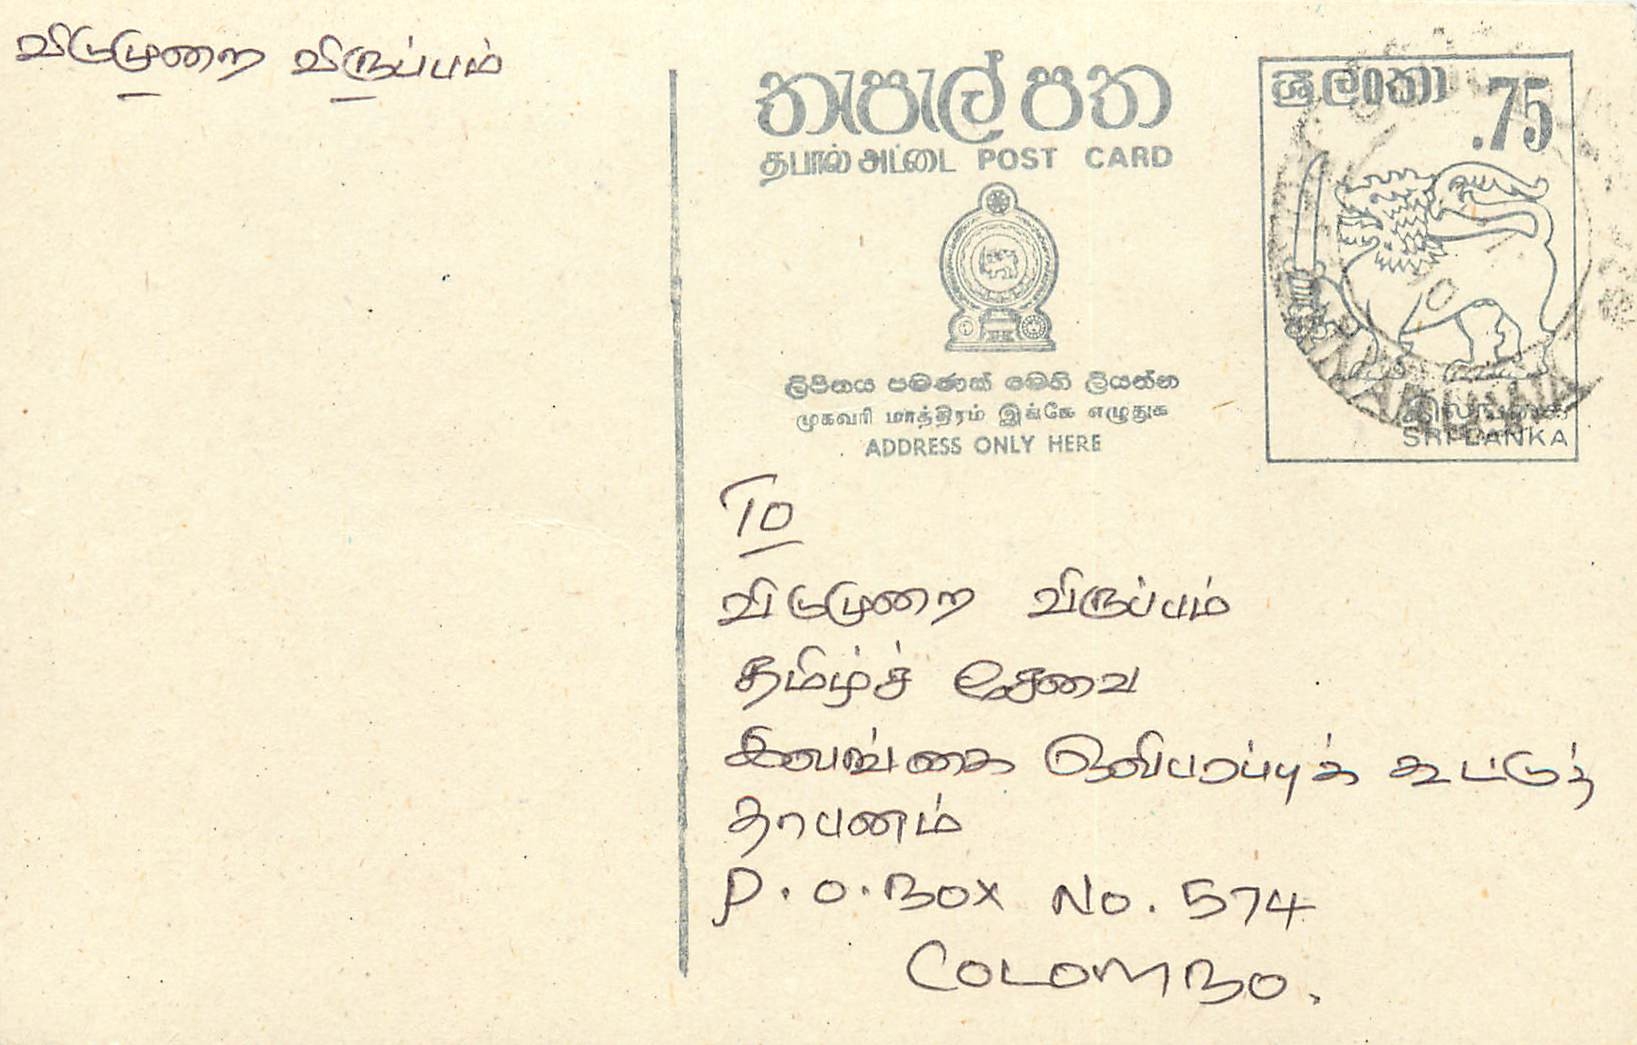 விடுமுறை விருப்பம்
තැපැල් පත
தபால் அட்டை POST CARD
ශ්‍රී ලංකා .75
ලිපිනය පමණක් මෙහි ලියන්න
முகவரி மாத்திரம் இங்கே எழுதுக
ADDRESS ONLY HERE
இலங்கை
SRI LANKA
To
விடுமுறை விருப்பம்
தமிழ்ச் சேவை
இலங்கை ஒலிபரப்புக் கூட்டுத்
தாபனம்
P.O.Box No. 574
COLOMBO.